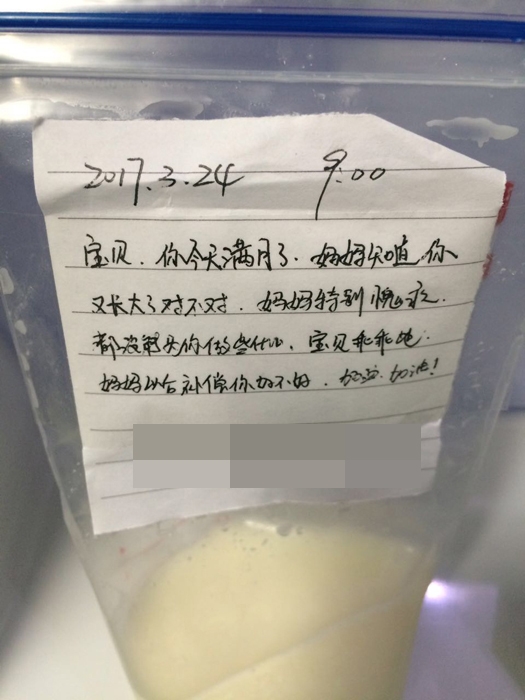 2017.3.24 9:00
宝贝.你今天满月了.妈妈知道你
又长大了对不对.妈妈特别愧疚.
都没能为你做些什么.宝贝乖乖吃.
妈妈以后补偿你好不好.加油.加油!